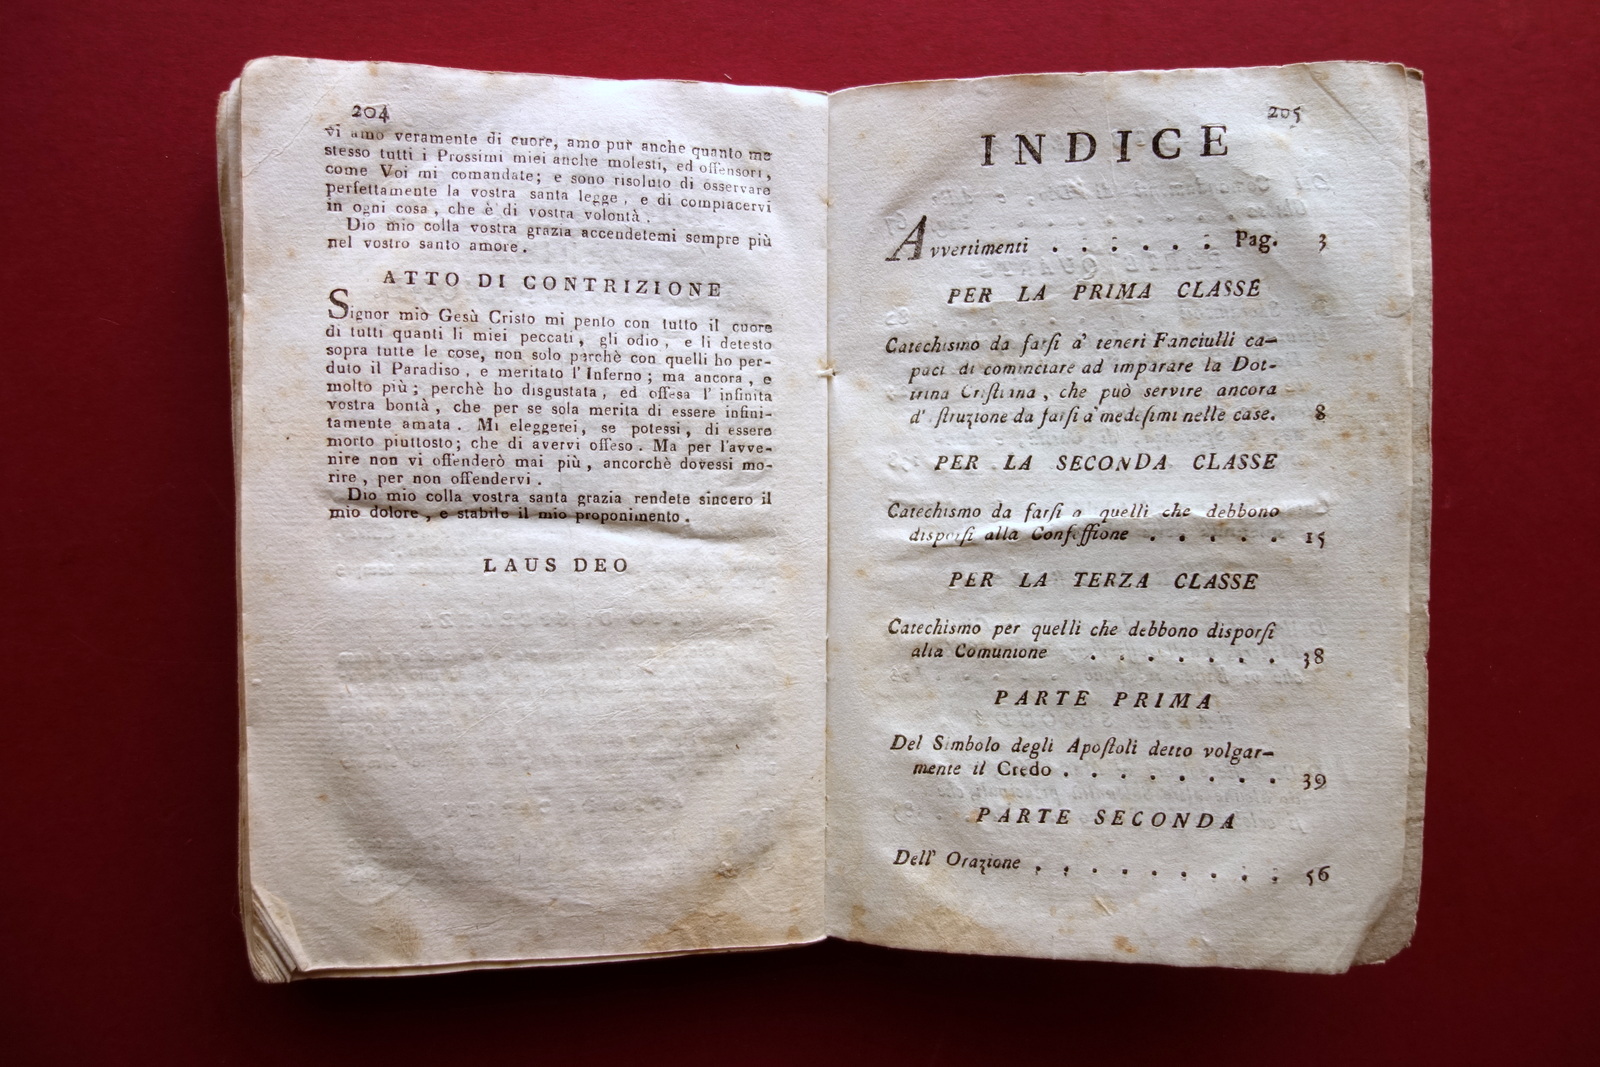 204
vi amo veramente di cuore, amo pur anche quanto me
stesso tutti i Prossimi miei anche molesti, ed offensori,
come Voi mi comandate; e sono risoluto di osservare
perfettamente la vostra santa legge, e di compiacervi
in ogni cosa, che è di vostra volontà.
Dio mio colla vostra grazia accendetemi sempre più
nel vostro santo amore.
ATTO DI CONTRIZIONE
Signor mio Gesù Cristo mi pento con tutto il cuore
di tutti quanti li miei peccati, gli odio, e li detesto
sopra tutte le cose, non solo perchè con quelli ho per-
duto il Paradiso, e meritato l'Inferno; ma ancora, e
molto più; perchè ho disgustata, ed offesa l'infinita
vostra bontà, che per se sola merita di essere infini-
tamente amata. Mi eleggerei, se potessi, di essere
morto piuttosto; che di avervi offeso. Ma per l'avve-
nire non vi offenderò mai più, ancorchè dovessi mo-
rire, per non offendervi.
Dio mio colla vostra santa grazia rendete sincero il
mio dolore, e stabile il mio proponimento.
LAUS DEO
205
INDICE
Avvertimenti . . . . . . . Pag. 3
PER LA PRIMA CLASSE
Catechismo da farſi a' teneri Fanciulli ca-
paci di cominciare ad imparare la Dot-
trina Criſtiana, che può servire ancora
d' ſtruzione da farſi a' medeſimi nelle case. 8
PER LA SECONDA CLASSE
Catechismo da farſi a quelli che debbono
disporſi alla Confeſſione . . . . . 15
PER LA TERZA CLASSE
Catechismo per quelli che debbono disporſi
alla Comunione . . . . . . . 38
PARTE PRIMA
Del Simbolo degli Apoſtoli detto volgar-
mente il Credo . . . . . . . . 39
PARTE SECONDA
Dell' Orazione . . . . . . . . . 56